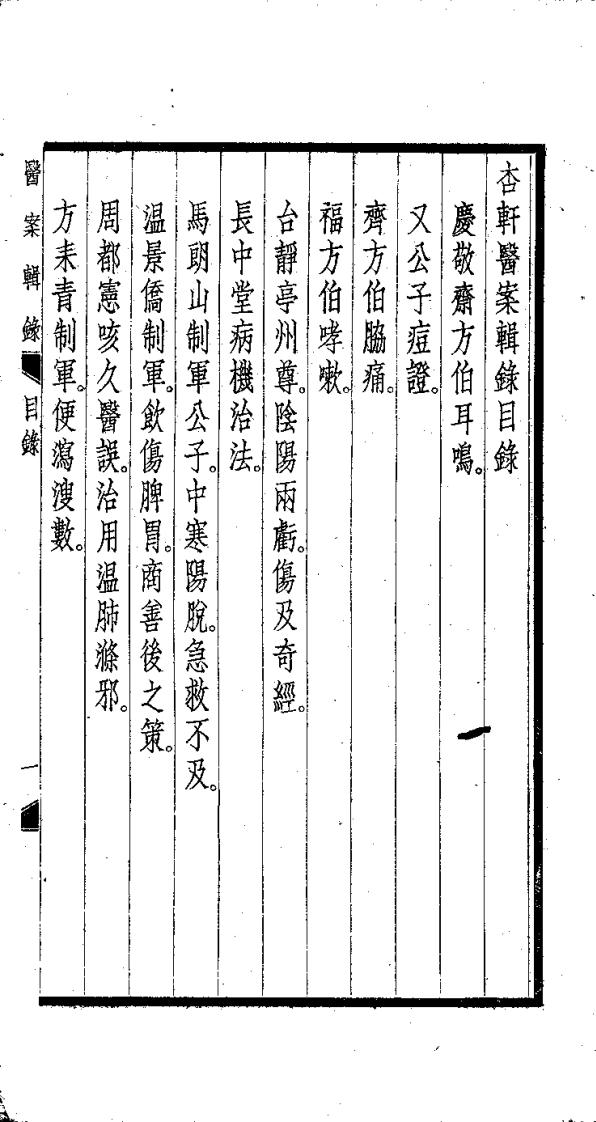 杏軒醫案輯錄目錄
慶敬齋方伯耳鳴。
又公子痘證。
齊方伯脇痛。
福方伯哮嗽。
台靜亭州尊。陰陽兩虧。傷及奇經。
長中堂病機治法。
馬朗山制軍公子。中寒陽脫。急救不及。
温景僑制軍。飲傷脾胃。商善後之策。
周都憲咳久醫誤。治用温肺滌邪。
方耒青制軍。便瀉溲數。
醫案輯錄 目錄 一